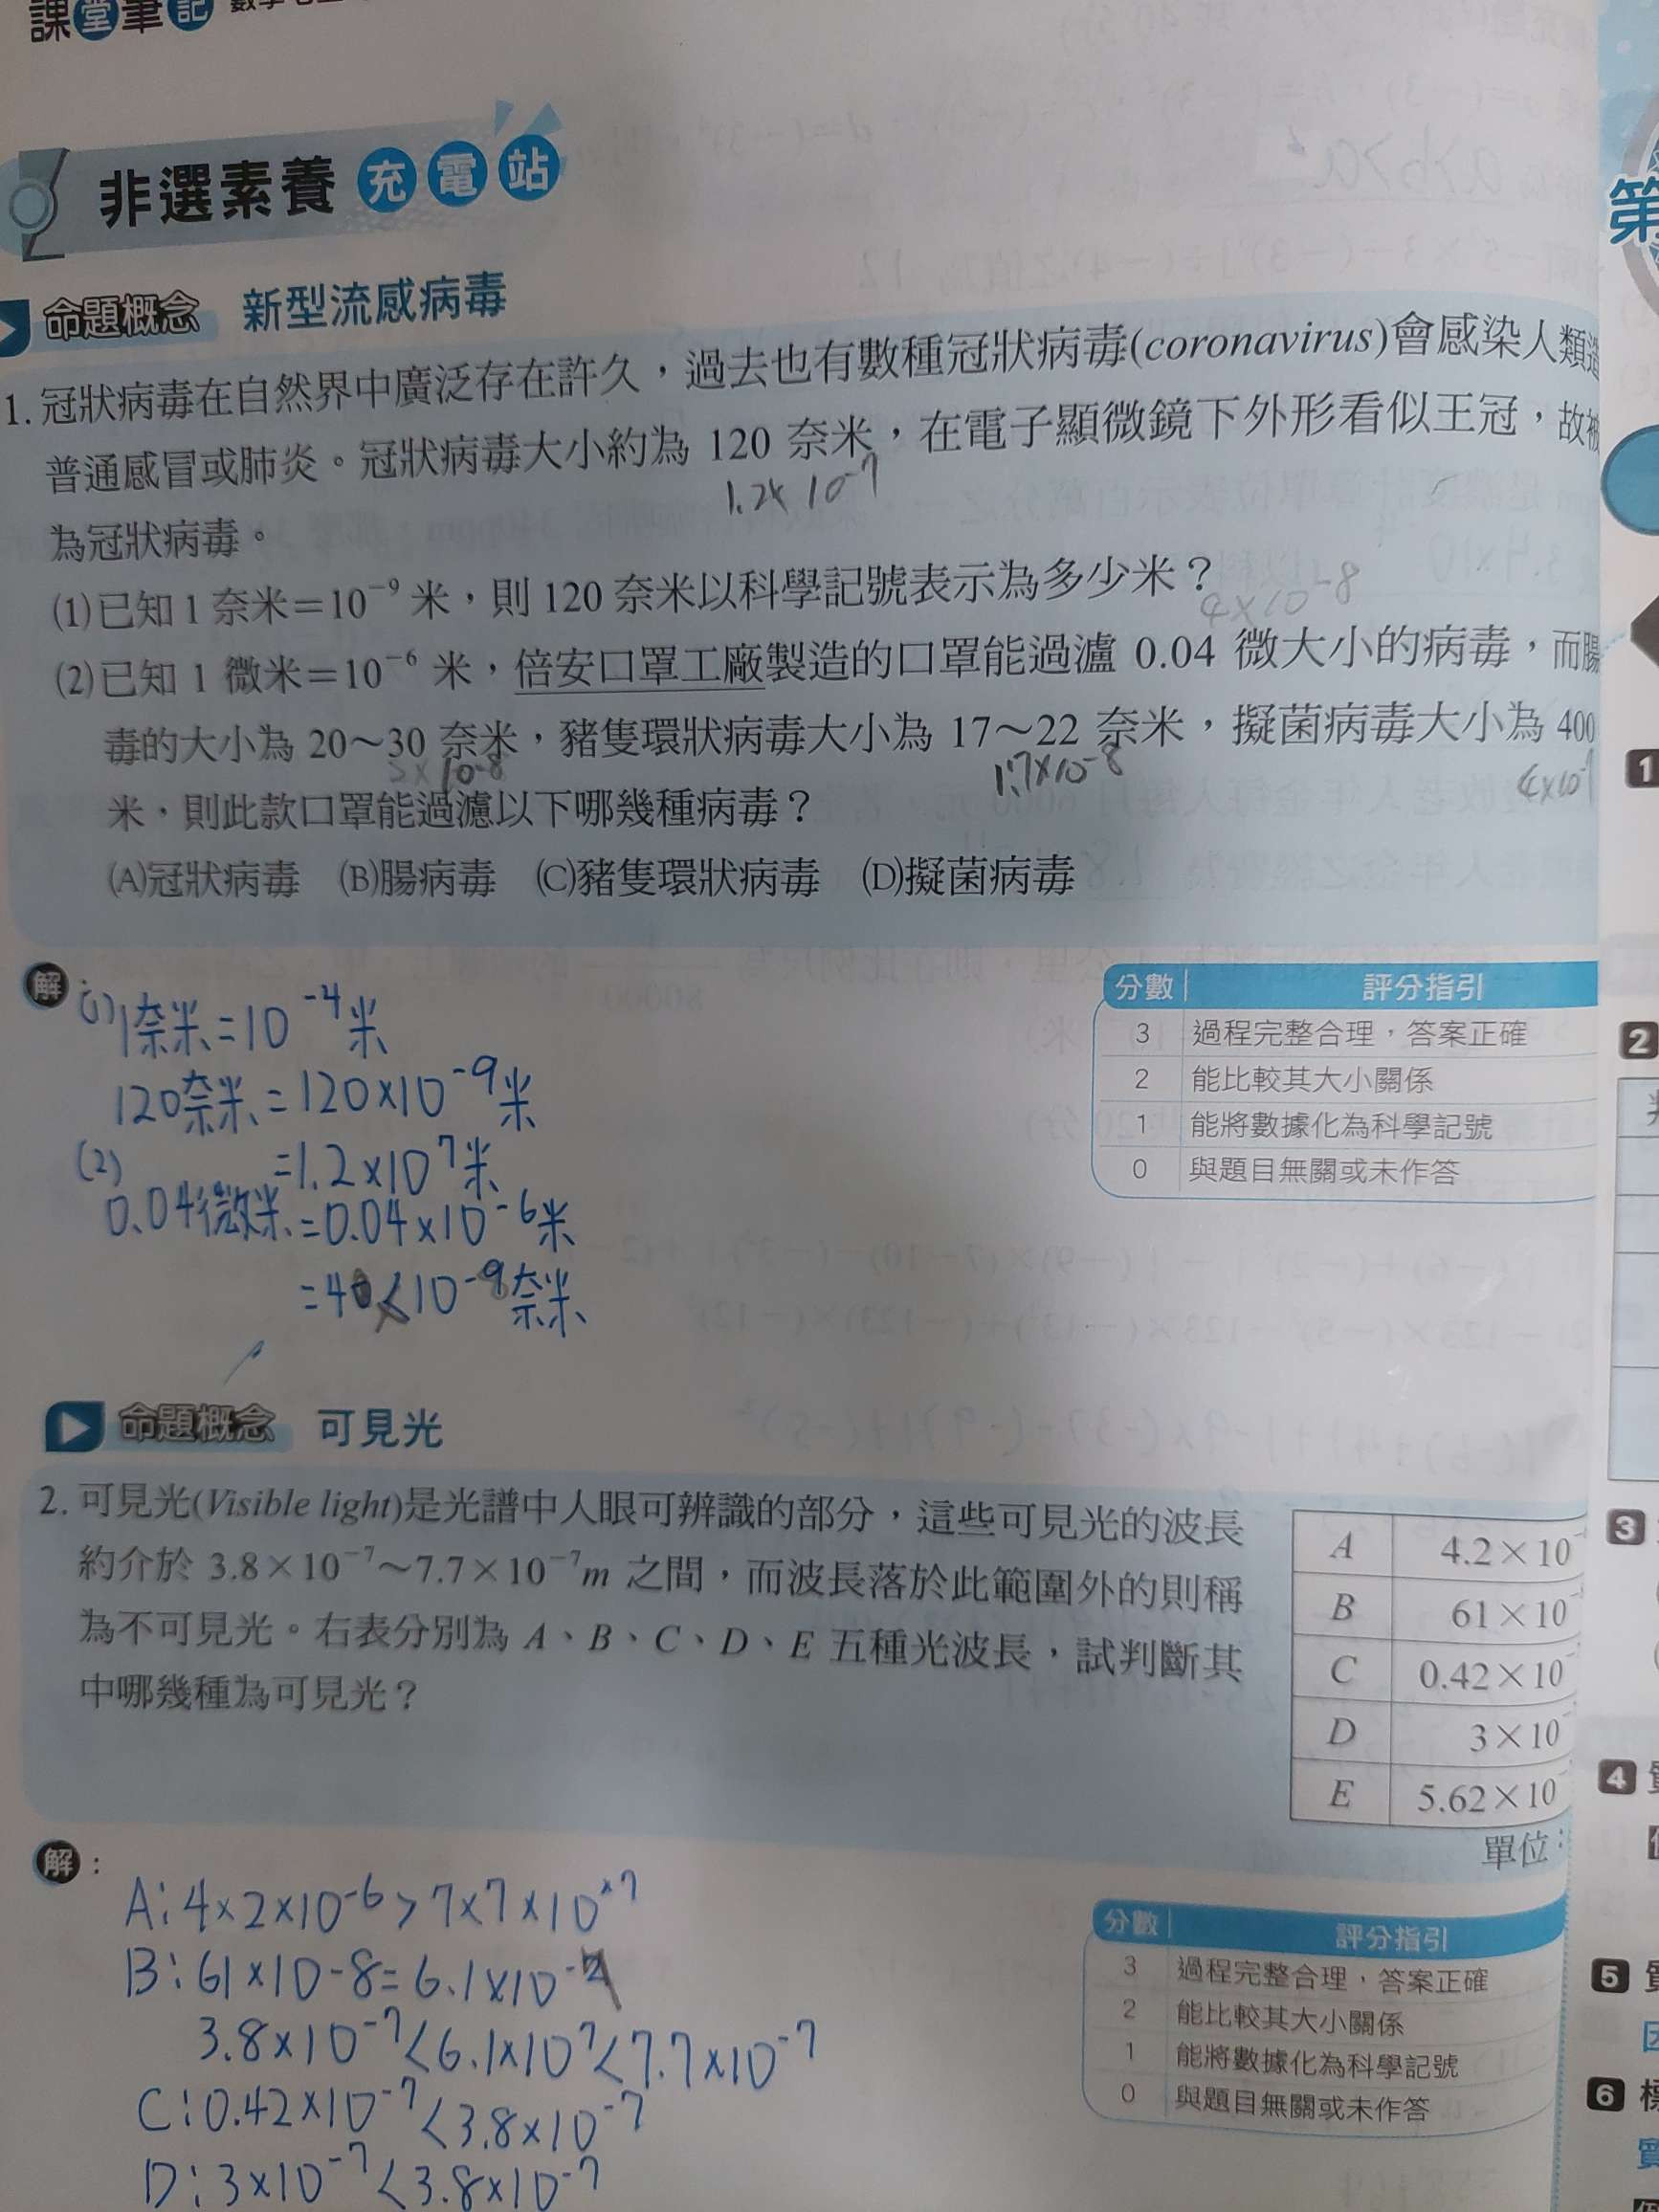 課堂筆記
非選素養充電站
命題概念 新型流感病毒
1. 冠狀病毒在自然界中廣泛存在許久，過去也有數種冠狀病毒(coronavirus)會感染人類造
普通感冒或肺炎。冠狀病毒大小約為 120 奈米，在電子顯微鏡下外形看似王冠，故被
1.2×10⁻⁷
為冠狀病毒。
⑴已知 1 奈米＝10⁻⁹ 米，則 120 奈米以科學記號表示為多少米？
4×10⁻⁸
⑵已知 1 微米＝10⁻⁶ 米，倍安口罩工廠製造的口罩能過濾 0.04 微大小的病毒，而腸
毒的大小為 20～30 奈米，豬隻環狀病毒大小為 17～22 奈米，擬菌病毒大小為 400
×10⁻⁸ 1.7×10⁻⁸ 4×10⁻⁷
米，則此款口罩能過濾以下哪幾種病毒？
(A)冠狀病毒 (B)腸病毒 (C)豬隻環狀病毒 (D)擬菌病毒
解
(1)1奈米=10⁻⁴米
120奈米=120×10⁻⁹米
=1.2×10⁷米
(2)
0.04微米=0.04×10⁻⁶米
=40×10⁻⁹奈米
分數 評分指引
3 過程完整合理，答案正確
2 能比較其大小關係
1 能將數據化為科學記號
0 與題目無關或未作答
命題概念 可見光
2. 可見光(Visible light)是光譜中人眼可辨識的部分，這些可見光的波長
約介於 3.8×10⁻⁷～7.7×10⁻⁷m 之間，而波長落於此範圍外的則稱
為不可見光。右表分別為 A、B、C、D、E 五種光波長，試判斷其
中哪幾種為可見光？
A 4.2×10
B 61×10
C 0.42×10
D 3×10
E 5.62×10
單位：
解：
A:4×2×10⁻⁶>7×7×10⁻⁷
B:61×10-8=6.1×10⁻⁷
3.8×10⁻⁷<6.1×10⁷<7.7×10⁻⁷
C:0.42×10⁻⁷<3.8×10⁻⁷
D:3×10⁻⁷<3.8×10⁻⁷
分數 評分指引
3 過程完整合理，答案正確
2 能比較其大小關係
1 能將數據化為科學記號
0 與題目無關或未作答
第
1
2
3
4
5
6